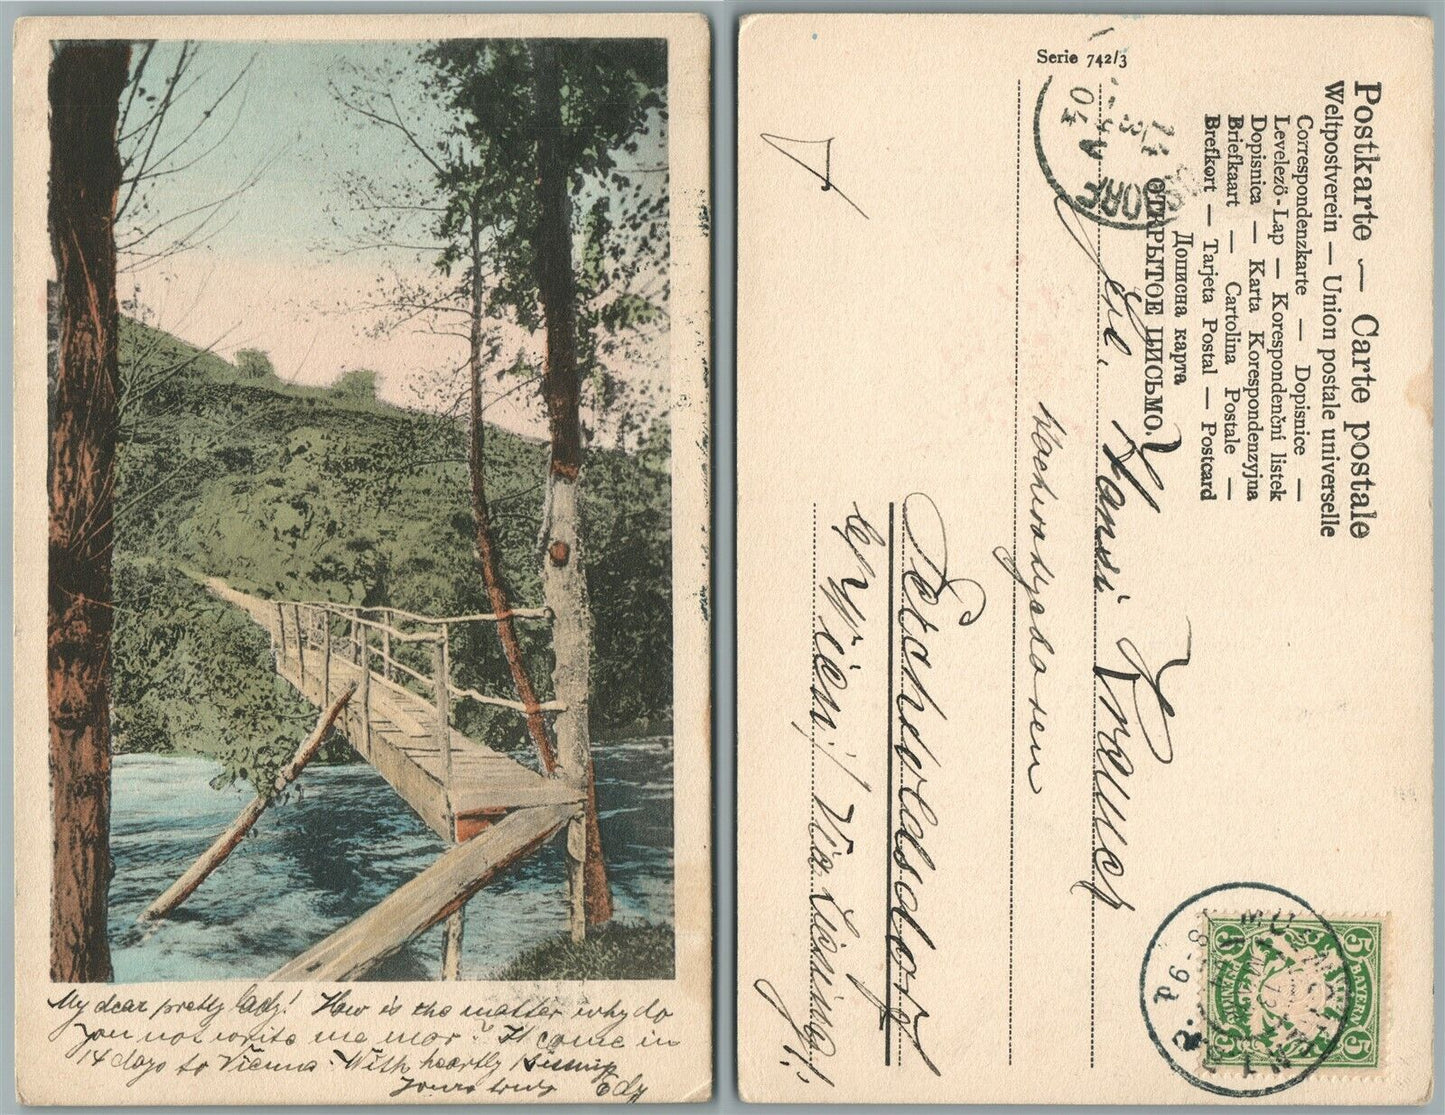 My dear pretty lady! How is the matter why do
you not write me mor? I come in
14 days to Vienna. With heartly kissing
Yours truly Edy
Serie 742/3
Postkarte — Carte postale
Weltpostverein — Union postale universelle
Correspondenzkarte — Dopisnice —
Levelező-Lap — Korespondenční listek
Dopisnica — Karta Korespondenzyjna
Briefkaart — Cartolina Postale —
Brefkort — Tarjeta Postal — Postcard
Дописна карта
ОТКРЫТОЕ ПИСЬМО.
Hansi Krauch
Perchtoldsdorf
b/ Wien! Via
DORF
04
BAYERN
5
5